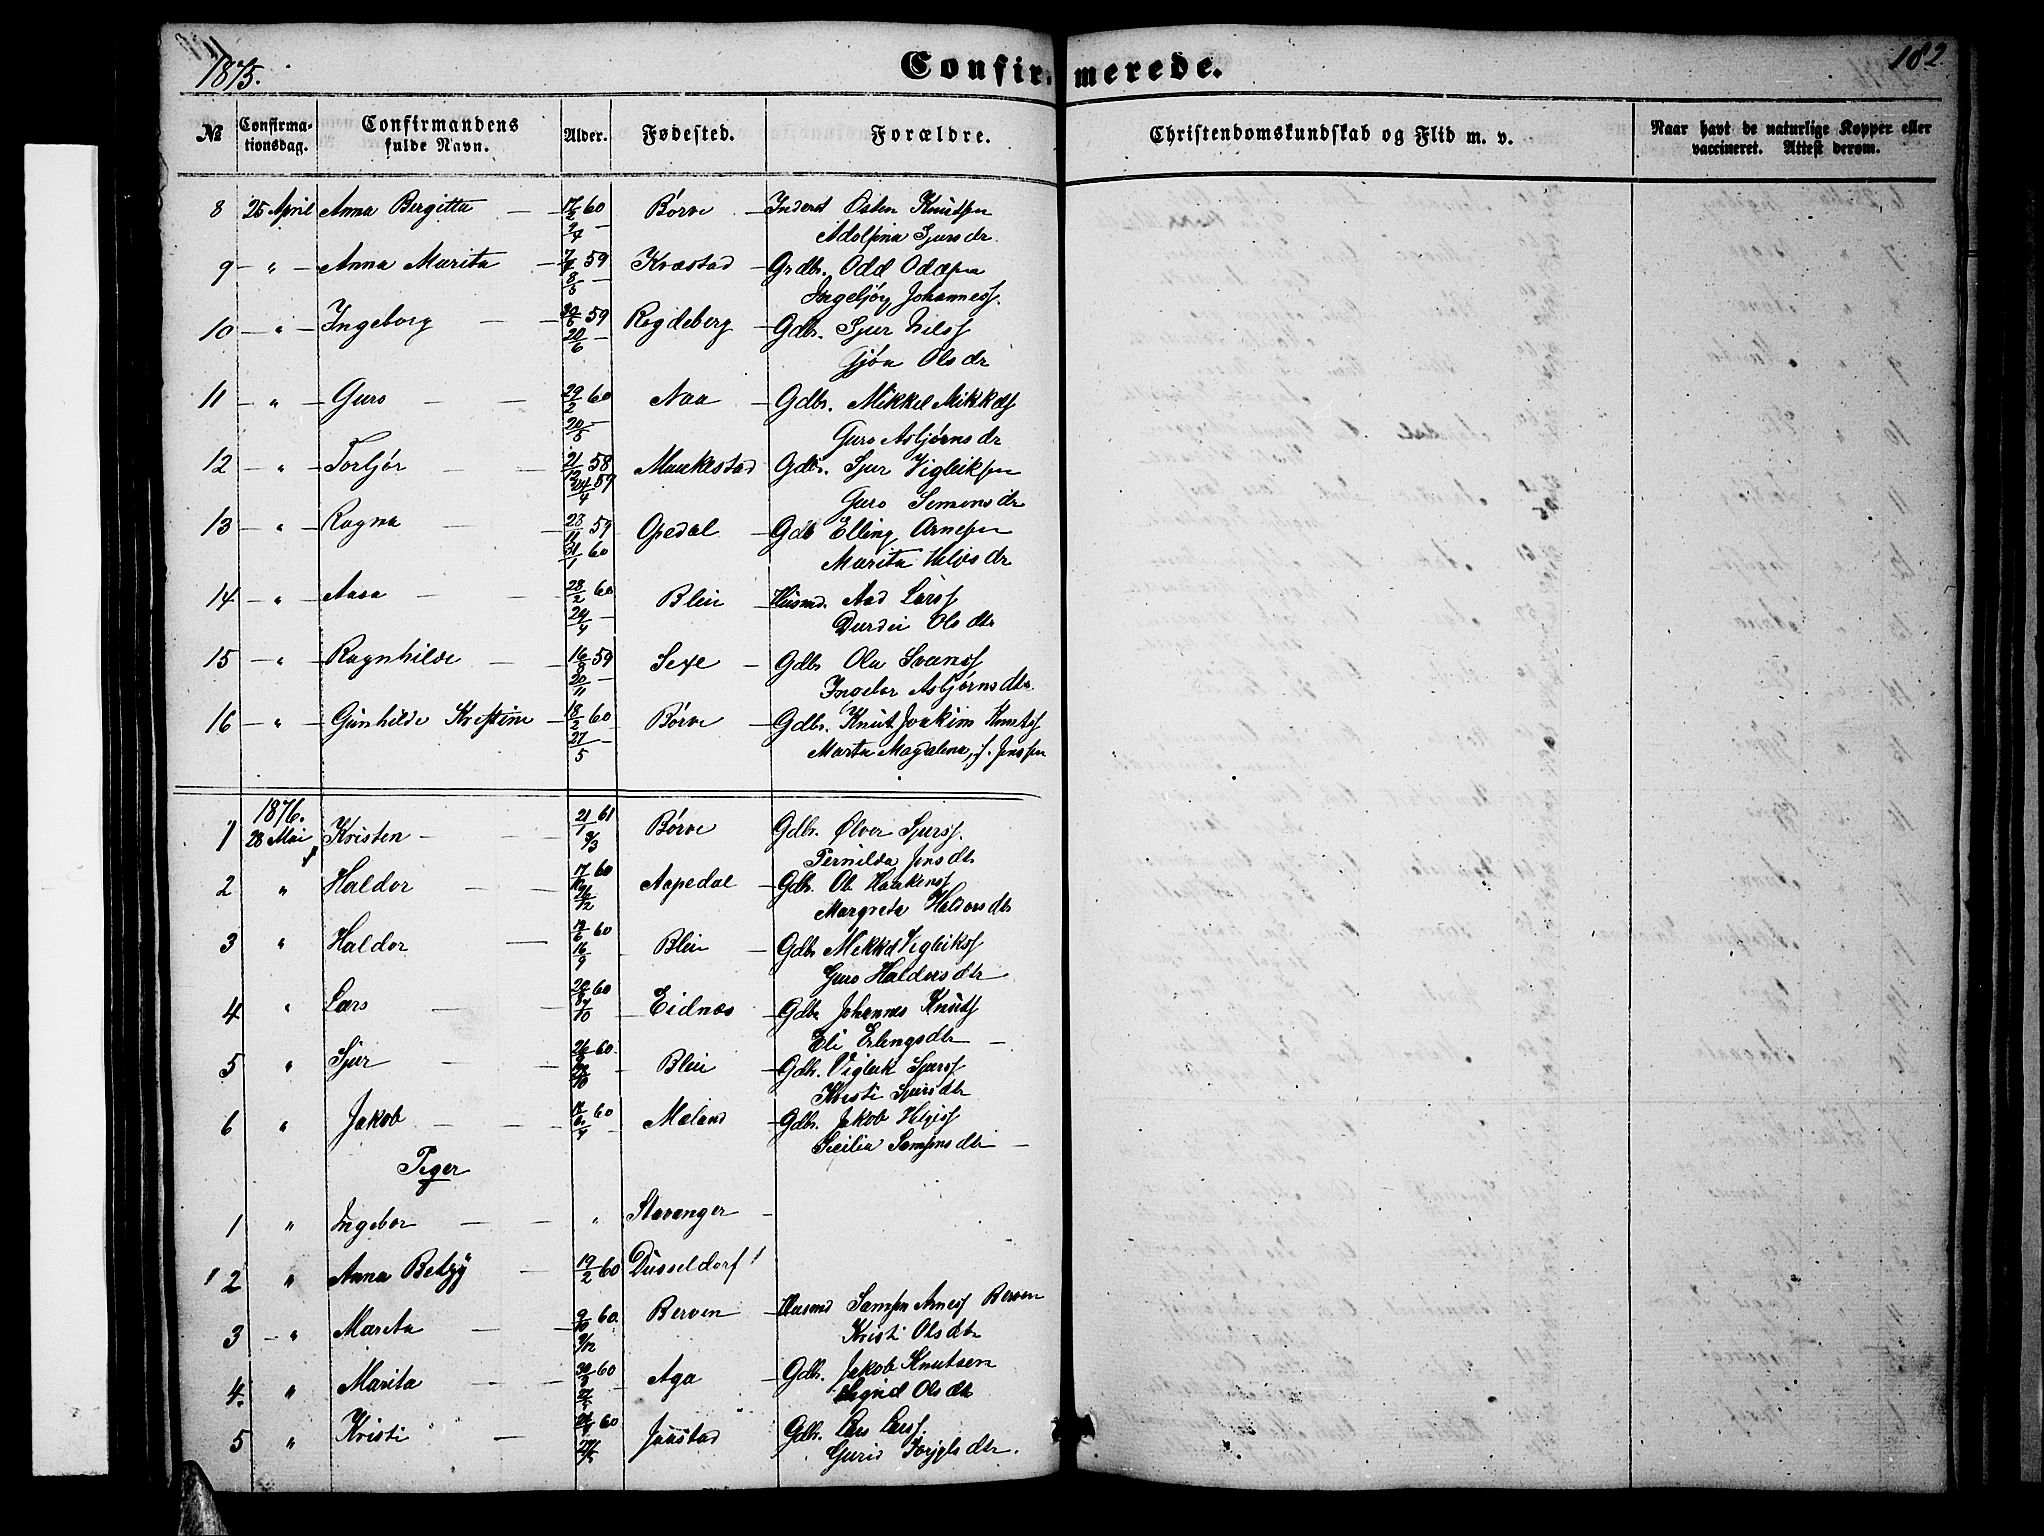 1875.
Confirmerede.
182
No
Confirma-
tionsdag.
Confirmandens
fulde Navn.
Alder.
Fødested.
Forældre.
Christendomskundskab og Flid m. v.
Naar havt de naturlige Kopper eller
vaccineret. Attest derom.
8 25 April Anna Bergitta 17/2 60 Børve Inderst Østen Knutsen
9/4 Adolfina Sjursdr.
9 " Anna Marita 59 Kvæstad Grdbr. Odd Oddsen
8/5 Ingebjørg Johannesf.
10 " Ingeborg 59 Rogdeberg Gdbr. Sjur Nilsf
20/6 Gjøa Olsdr
11 " Guro 29/2 60 Naa Gdbr. Mikkel Mikkelsf
20/5 Guro Asbjørnsdr
12 " Torbjør 21/12 58 Maakestad Gdbr. Sjur Vigleiksen
24/4 57 Guro Simonsdr
13 " Ragna 28/11 59 Opedal Gdb Elling Arnesen
31/1 60 Marita
14 " Aasa 28/2 60 Bleie Husmd. Aad Larsf
24/4 Durdei Olsdtr
15 " Ragnhilde 59 Sexe Gdbr Ola Svensf
20/11 Ingebor Asbjørnsdtr.
16 " Gunhilde Kristine 18/3 60 Børve Gdbr. Knut Joakim Knutsf
27/5 Marta Magdalena, f. Jenssen
1876.
1 28 Mai Kristen 21/1 61 Børve Gdbr. Ølver Sjursf.
3/3 Pernilda Jensdtr
2 " Haldor 60 Aapedal Gdbr. Ole Haakensf
Margreta Haldorsdtr
3 " Haldor 60 Bleie Gdbr Mikkel Vigleiksf
16/9 Guro Haldorsdtr
4 " Lars 60 Eidnes Gdbr Johannes Knutsf
Eli Erlingsdtr
5 " Sjur 60. Bleie Gdbr. Vigleik Sjursf
Kristi Sjursdtr
6 " Jakob 60 Mæland Gdbr. Jakob Helgesf
Sicilia Samsonsdtr
Piger
1 " Ingebor " Stavanger
2 " Anna Betzy 19/2 60 Düsseldorf
3 " Marita 9/10 60. Berven Husmd Samson Arnesf Berven
9/12 Kristi Olsdtr
4. " Marita 60 Aga Gdbr. Jakob Knutsen
Sigrid Olsdtr
5 " Kristi 60 Jaastad Gdbr. Lars Larsf.
Gurid Torjelsdtr.